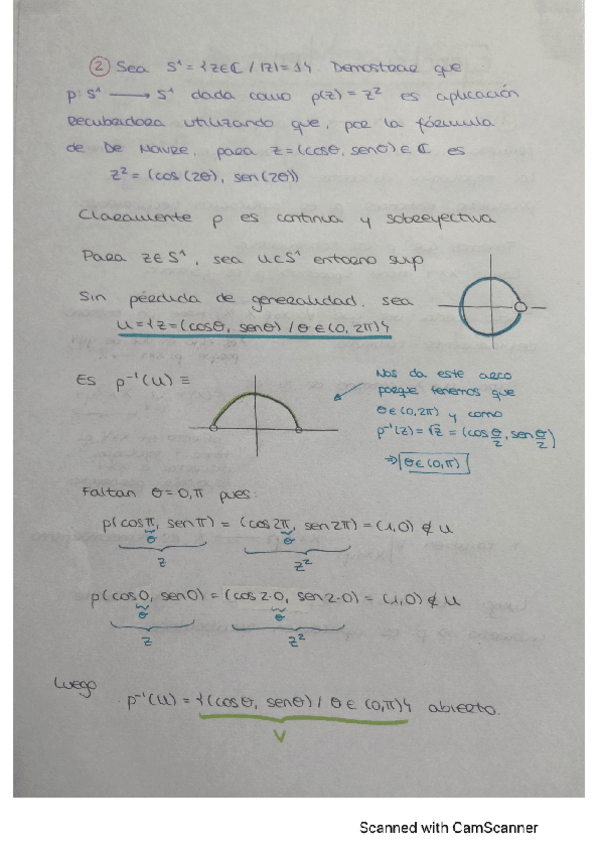 ② Sea S¹ = {z∈ℂ / |z|=1}. Demostrar que
p: S¹ ⟶ S¹ dada como p(z) = z² es aplicación
recubridora utilizando que, por la fórmula
de De Moivre, para z=(cosθ, senθ) ∈ ℂ es
z² = (cos(2θ), sen(2θ))
Claramente p es continua y sobreyectiva
Para z∈S¹, sea U⊂S¹ entorno suyo
Sin pérdida de generalidad, sea
U = {z=(cosθ, senθ) / θ∈(0, 2π)}
Es p⁻¹(U) ≡
Nos da este arco
porque tenemos que
θ∈(0,2π) y como
p⁻¹(z) = √z = (cos θ/2, sen θ/2)
⇒ θ∈(0,π)
Faltan θ=0,π pues:
p(cosπ, senπ) = (cos2π, sen2π) = (1,0) ∉ U
θ θ
z z²
p(cos0, sen0) = (cos2·0, sen2·0) = (1,0) ∉ U
θ θ
z z²
Luego
p⁻¹(U) = {(cosθ, senθ) / θ∈(0,π)} abierto.
V
Scanned with CamScanner